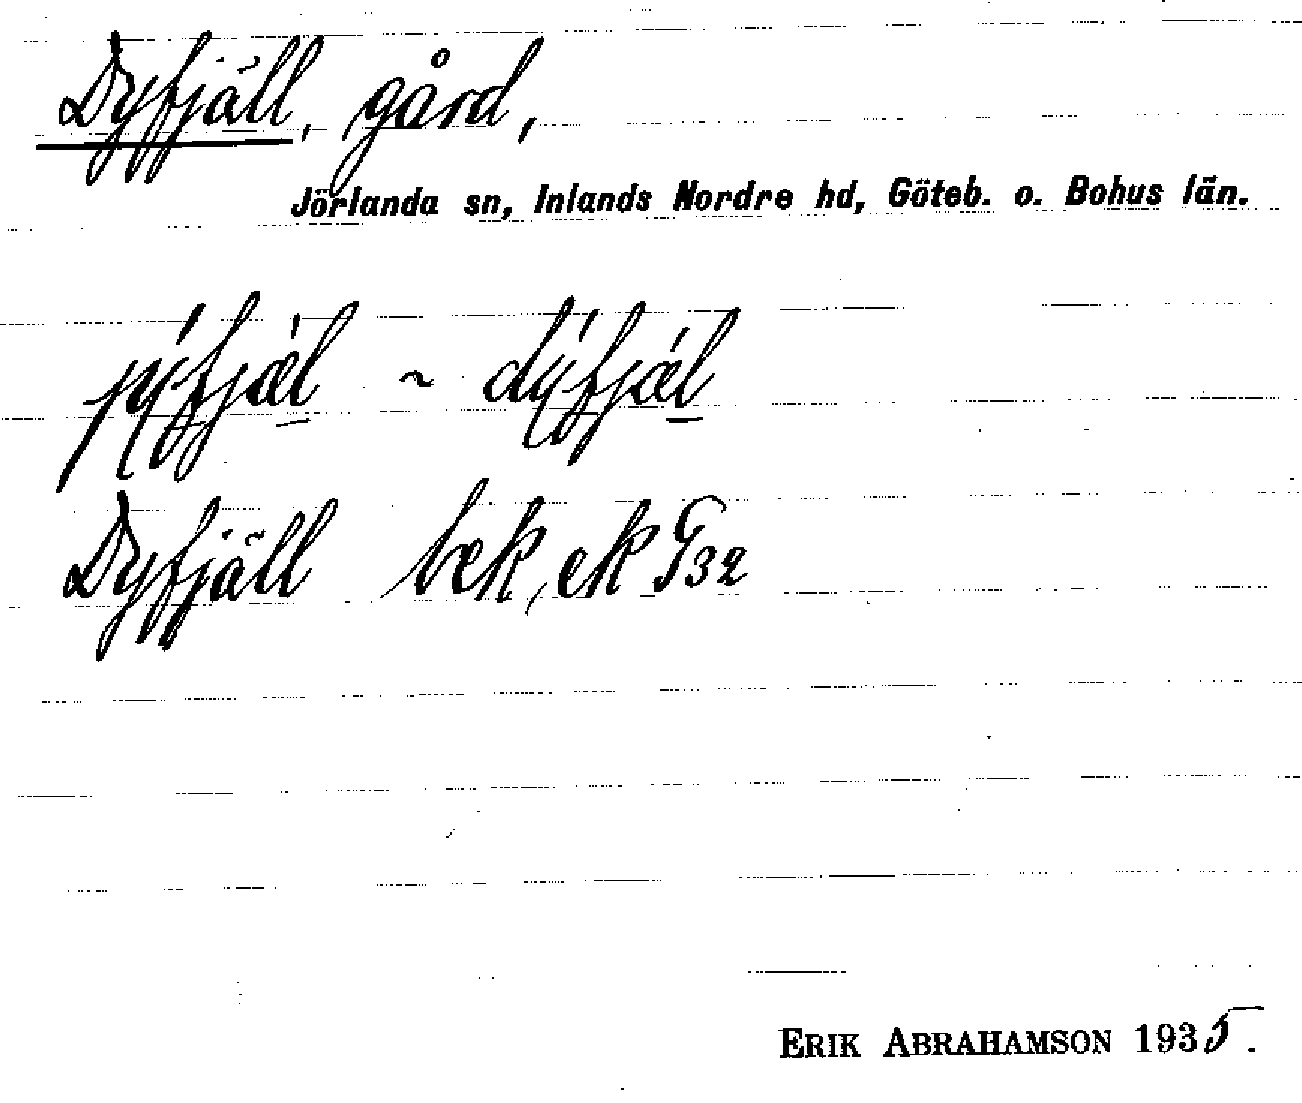 Dyfjäll, gård,
Jörlanda sn, Inlands Nordre hd, Göteb. o. Bohus län.
pýfjæ̀l ~ dýfjæ̀l
Dyfjäll bek, ek G32
ERIK ABRAHAMSON 1935.